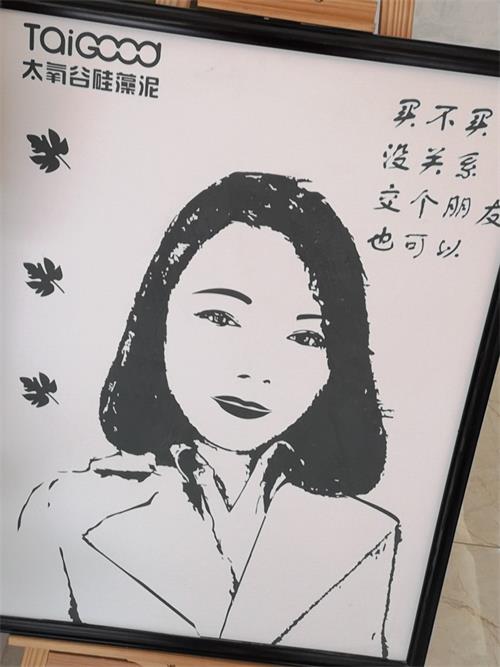 TAiGOOOd
太氧谷硅藻泥
买不买
没关系
交个朋友
也可以